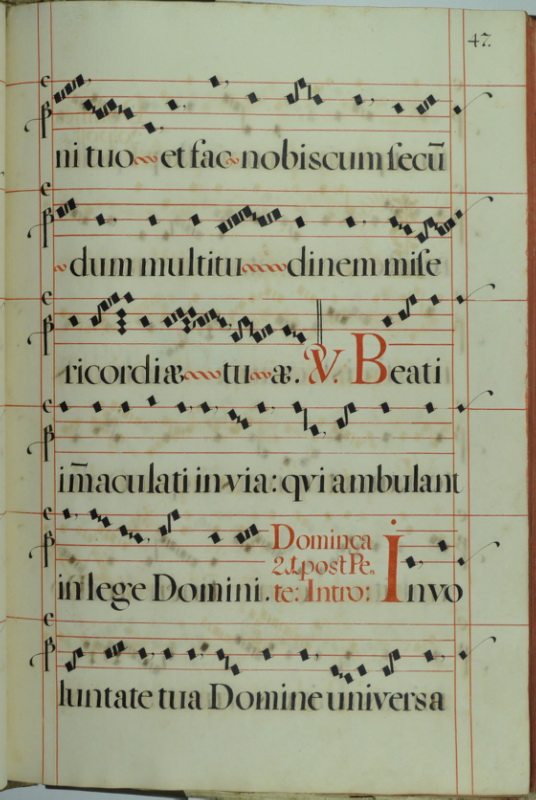 47.
ni tuo et fac nobiscum secũ
dum multitu dinem mise
ricordiæ tu æ. ℣. Beati
im̃aculati in via: qvi ambulant
in lege Domini. Dominca
21. post Pe.
te: Intro: Invo
luntate tua Domine universa